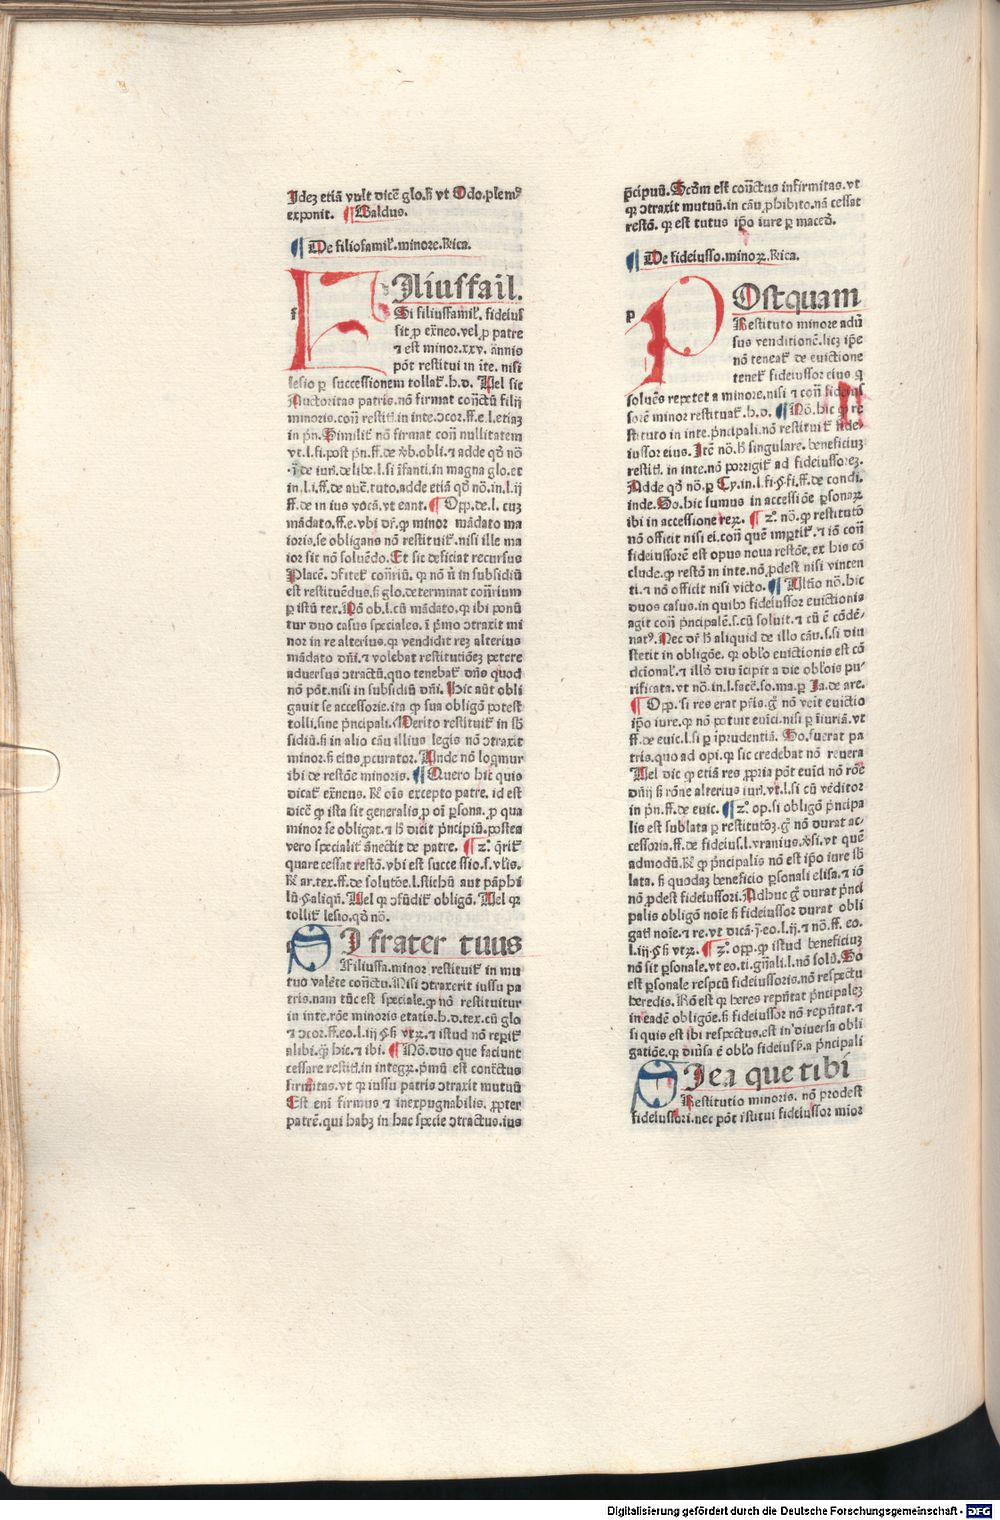 Idez etiā vult dicē glo.ß vt Odo.plemꝰ
exponit. ¶ Baldus.
¶ De filiofamil'.minore.Rica.
FIliuſfail.
Si filiusfamil'. fideius
sit p̱ ex̄neo.vel p̱ patre
⁊ est minor.xxv. ānnis
pōt restitui in īte. nisi
lesio ꝑ successionem tollat̄.h.d. Vel sic
Auctoritas patris.nō firmat con̄ctū filij
minoris.con̄ restit̄l.in inte.ɔcor.ff.e.l.etiaz
in p̄n. Similit̄ nō firmat con̄ nullitatem
in.l.i.ff.de auc̄.tuto.adde etiā qð nō.in.l.ij
ff.de in ius vocā.vt eant. ¶ Opp.de.l. cuz
mādato.ff.e.vbi dr̄.ꝙ minor mādato ma
ioris.se obligans nō restituit̄.nisi ille ma
ior sit nō soluēdo. Et sic deficiat recursus
Placē. ɔfitet̄ con̄riū. qꝛ nō n̄ in subsidiū
est restituēdus.ß glo.determinat con̄rium
ꝑ istū tex. Nō ob.l.cū mādato.qꝛ ibi ponū
tur duo casus speciales. i p̄mo ɔtraxit mi
nor in re alterius.qꝛ vendidit rez alterius
mādato dn̄i.⁊ volebat restitutiōez petere
adversus ɔtractū,quo tenebat̄ dn̄s quod
nō pōt.nisi in subsidiū dn̄i. Hic aūt obli
gauit se accessorie.ita ꝙ sua obligō potest
tolli,sine p̄ncipali. Merito restituit̄ in sb̄
sidiū.ß in alio cāu illius legis nō ɔtraxit
minor.ß eius p̱curator. Unde nō loq̄mur
ibi de restōe minoris. ¶ Quero hic quis
dicat̄ ex̄neus. R̄l oīs excepto patre. id est
dicē ꝙ ista sit generalis ꝓ oī ꝑsona. ꝓ qua
minor se obligat.⁊ ß dicit p̄ncipiū.postea
vero specialit̄ ānectit de patre. ¶ 2ͦ. q̄rit̄
quare cessat restō.vbi est successio.s.vl'is.
R̄l ar.tex.ff.de solutōe.l.stichū aut pāphi
lū.§.aliqn̄. Vel qꝛ ɔfūdit̄ obligō. Vel qꝛ
tollit̄ lesio.qð nō.
SI frater tuus
Filiuſfa.minor restituit̄ in mu
tuo valēte con̄ctu. Nisi ɔtraxerit iussu pa
tris.nam tūc est speciale.ꝙ nō restituitur
in inte.rōe minoris etatis.h.d.tex.cū glo
⁊ ɔcor.ff.eo.l.iij.§.ß vtꝝ.⁊ istud nō reꝑit̄
alibi.qꝫ hic.⁊ ibi. ¶ Nō.duo que faciunt
cessare restit̄l.in integꝝ.p̄mū est con̄ctus
firmitas.vt qꝛ iussu patris ɔtraxit mutuū
Est eni firmus ⁊ inexpugnabilis. ꝓpter
patrē.qui habꝫ in hac specie ɔtractus.ius
p̄cipuū. Scðm est con̄ctus infirmitas.vt
qꝛ ɔtraxit mutuū.in cāu ꝓhibito.nā cessat
restō. qꝛ est tutus ip̄o iure ꝑ maceð.
¶ De fideiusso.minoꝝ.Rica.
POstquam
Restituto minore adū
sus venditionē.licꝫ ip̄e
nō teneat̄ de evictione
tenet̄ fideiussor eius q̄
soluēs repetet a minore.nisi ⁊ con̄ fideius
sorē minor restituat̄.h.d. ¶ Nō.hic ꝙ re
stituto in inte.p̄ncipali.nō restituit̄ fide
iussor eius. Itē nō.ß singulare. beneficiuꝫ
restit̄l. in inte.nō porrigit̄ ad fideiussoreꝫ.
Adde qð nō.ꝑ Cy.in.l.fi.§.fi.ff.de condi.
inde. So.hic sumus in accessiōe ꝑsonaꝝ
ibi in accessione reꝝ. ¶ 2ͦ. nō.ꝙ restitutō
nō officit nisi ei.con̄ quē imp̄tit̄. ⁊ iō con̄
fideiussorē est opus noua restōe. ex his cō
clude.ꝙ restō in inte.nō ꝓdest nisi vincen
ti.⁊ nō officit nisi victo. ¶ Ultīo nō. hic
duos casus.in quibꝰ fideiussor euictionis
agit con̄ p̄ncipalē.s.cū soluit.⁊ cū ē cōdē-
natꝰ. Nec dr̄ ß aliquid de illo cāu.s.si diu
stetit in obligōe. qꝛ obl'o euictionis est cō
ditional'.⁊ illð diu īcipit a die obl'ois pu-
rificata.vt nō.in.l.facē.so.ma.ꝑ Ja.de are.
¶ Opp.si res erat p̄ris.ḡ nō venit euictio
ip̄o iure.qꝛ nō potuit euīci.nisi ꝑ īiuriā.vt
ff.de euic.l.si ꝑ īprudentiā. So.fuerat pa
tris.quo ad opi.qꝛ sic credebat nō reuera
Uel dic ꝙ etiā res ꝓpria pōt euīci nō rōe
dn̄ij ß rōne alterius iuri.vt.l.si cū vēditor
in p̄n.ff.de euic. ¶ 2ͦ. op.si obligō p̄ncipa
lis est sublata ꝑ restitutōꝫ.ḡ nō durat ac-
cessoria.ff.de fideius.l.vranius.ꝟsi.vt quē
admodū.R̄l ꝙ p̄ncipalis nō est ip̄o iure sb̄
lata. ß quodaꝫ beneficio ꝑsonali elisa.⁊ iō
nō ꝓdest fideiussori. Adhuc ḡ durat p̄nci
palis obligō noīe ß fideiussor durat obli
gatī noīe.⁊ re.vt dicā.j.eo.l.ij.⁊ nō.ff. eo.
l.iij.§.ß vtꝝ. ¶ 3ͦ. opp.ꝙ istud beneficiuꝫ
nō sit ꝑsonale.vt eo.ti.gn̄ali.l.nō solū. So
est ꝑsonale respcū fideiussoris.nō respectu
heredis. Rō est qꝛ heres rep̄ntat p̄ncipaleꝫ
in eadē obligōe.ß fideiussor nō rep̄ntat.⁊
si quis est ibi respectus.est in diuersa obli
gatiōe.qꝛ diūsa ē obl'o fideiusß.a p̄ncipali
SI ea que tibi
Restitutio minoris. nō prodest
fideiussori.nec pōt istitui fideiussor mior
Digitalisierung gefördert durch die Deutsche Forschungsgemeinschaft - DFG